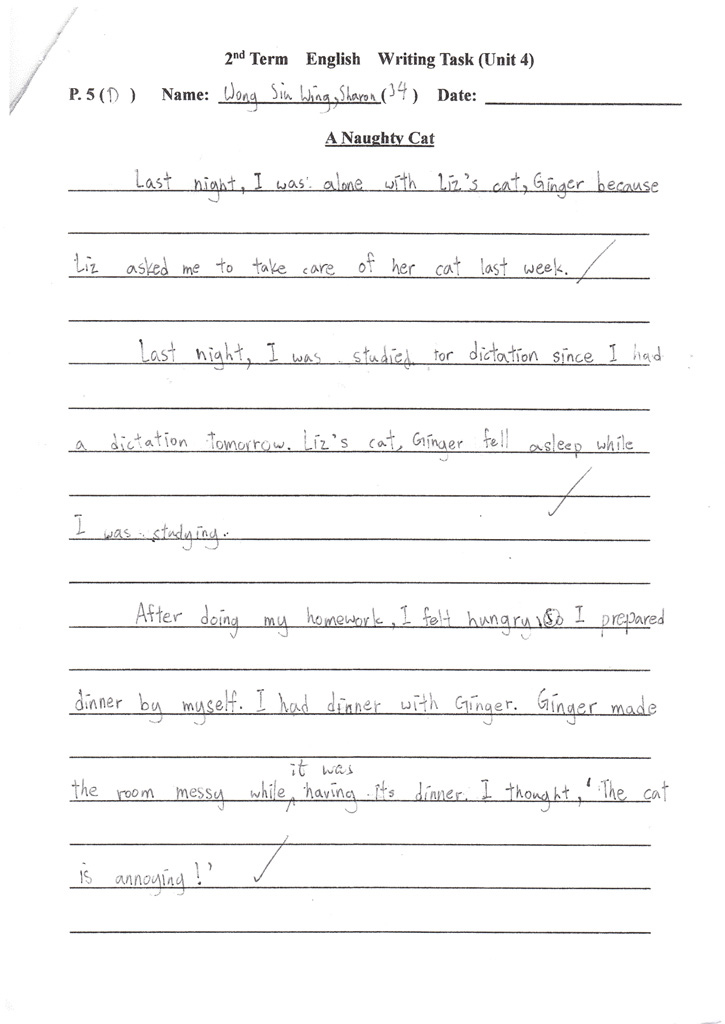 2nd Term English Writing Task (Unit 4)
P. 5 (D) Name: Wong Siu Wing, Sharon (34) Date:
A Naughty Cat
Last night, I was alone with Liz's cat, Ginger because
Liz asked me to take care of her cat last week.
Last night, I was studied for dictation since I had
a dictation tomorrow. Liz's cat, Ginger fell asleep while
I was studying.
After doing my homework, I felt hungry, so I prepared
dinner by myself. I had dinner with Ginger. Ginger made
it was
the room messy while having its dinner. I thought, 'The cat
is annoying!'